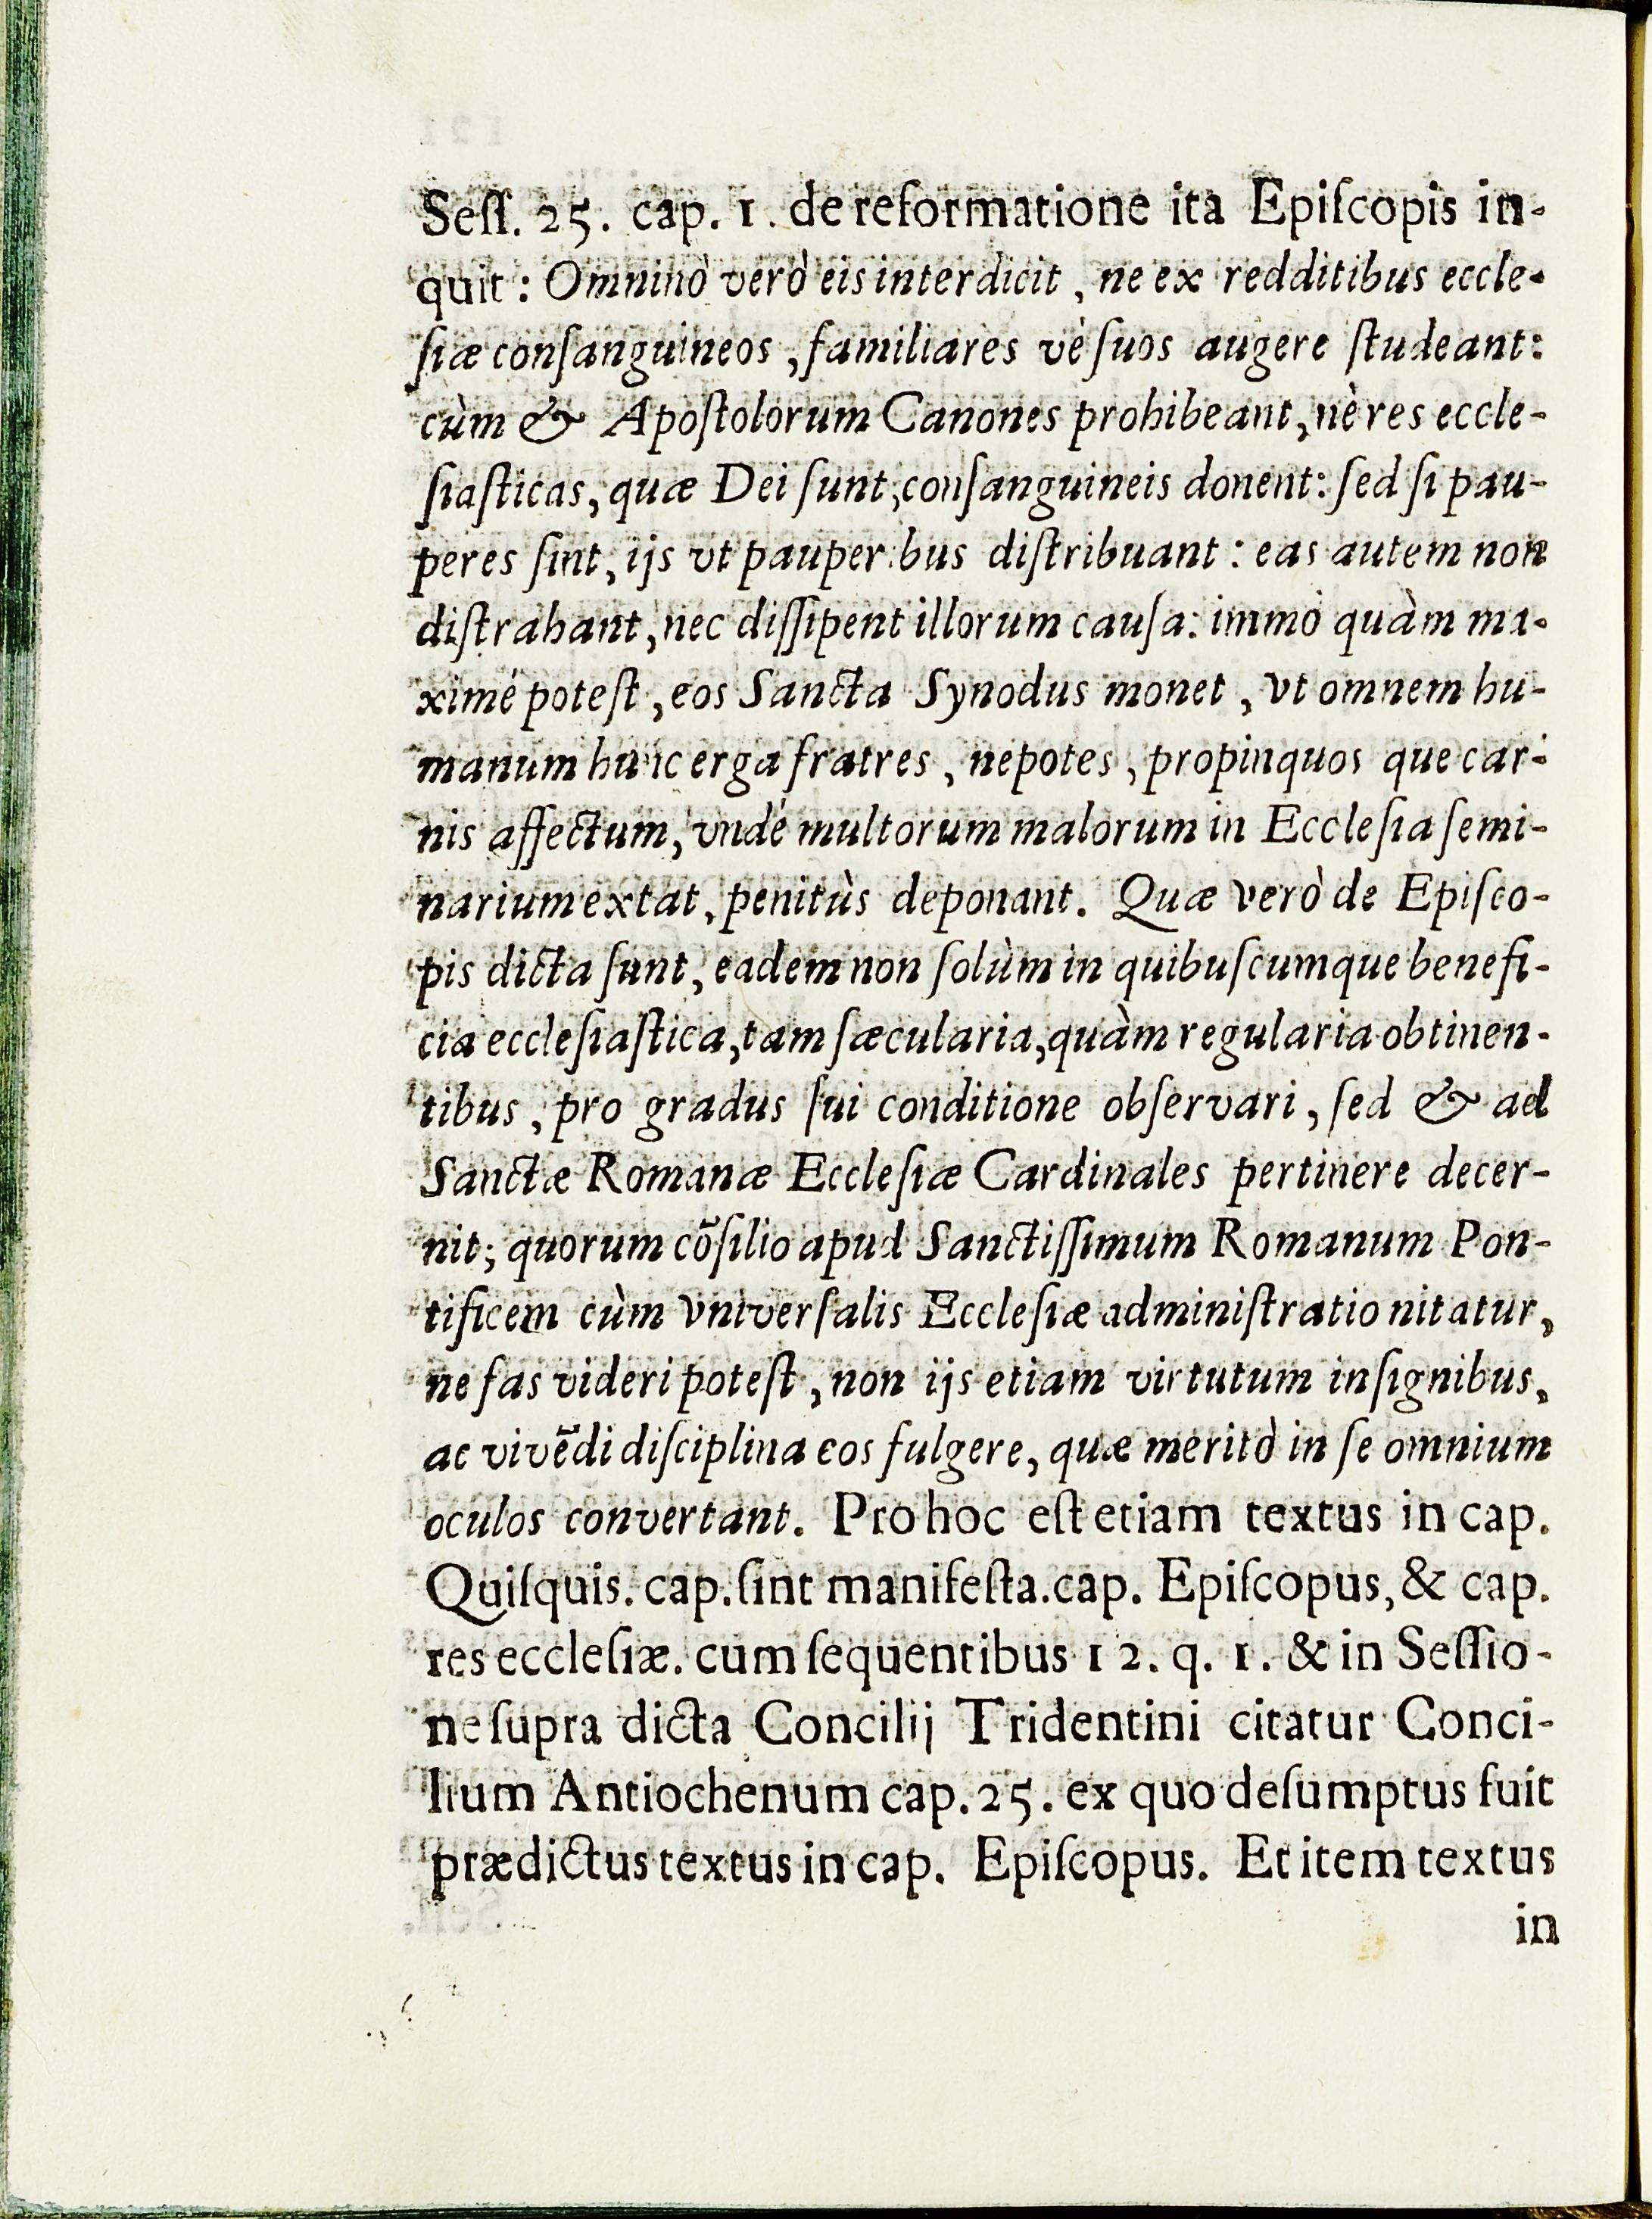 Seſſ. 25. cap. 1. de reformatione ita Epiſcopis in-
quit: Omninò verò eis interdicit, ne ex redditibus eccle-
ſiæ conſanguineos, familiares vè ſuos augere ſtudeant:
cùm & Apoſtolorum Canones prohibeant, nè res eccle-
ſiaſticas, quæ Dei ſunt, conſanguineis donent: ſed ſi pau-
peres ſint, ijs vt pauperibus diſtribuant: eas autem non
diſtrahant, nec diſſipent illorum cauſa: immò quàm ma-
ximè poteſt, eos Sancta Synodus monet, vt omnem hu-
manum hunc erga fratres, nepotes, propinquos que car-
nis affectum, vndè multorum malorum in Eccleſia ſemi-
narium extat, penitùs deponant. Quæ verò de Epiſco-
pis dicta ſunt, eadem non ſolùm in quibuſcumque benefi-
cia eccleſiaſtica, tam ſæcularia, quàm regularia obtinen-
tibus, pro gradus ſui conditione obſervari, ſed & ad
Sanctæ Romanæ Eccleſiæ Cardinales pertinere decer-
nit; quorum cõſilio apud Sanctiſſimum Romanum Pon-
tificem cùm vniverſalis Eccleſiæ adminiſtratio nitatur,
ne fas videri poteſt, non ijs etiam virtutum inſignibus,
ac vivẽdi diſciplina eos fulgere, quæ meritò in ſe omnium
oculos convertant. Pro hoc eſt etiam textus in cap.
Quiſquis. cap. ſint manifeſta. cap. Epiſcopus, & cap.
res eccleſiæ. cum ſequentibus 12. q. 1. & in Seſſio-
ne ſupra dicta Concilij Tridentini citatur Conci-
lium Antiochenum cap. 25. ex quo deſumptus fuit
prædictus textus in cap. Epiſcopus. Et item textus
in